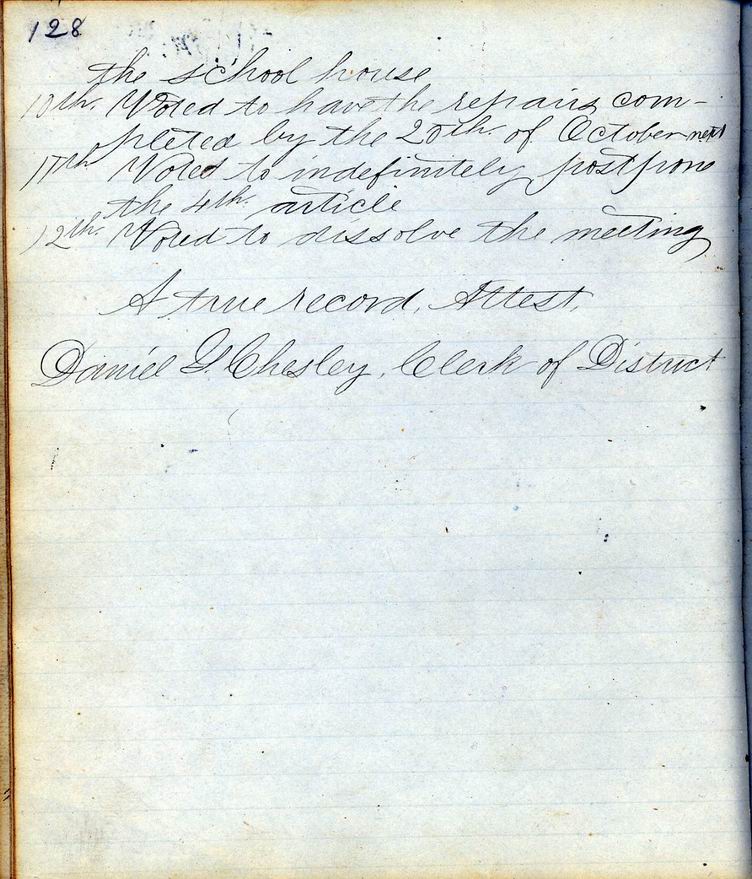 128
the school house
10th. Voted to have the repairs com-
pleted by the 20th. of October next
11th Voted to indefinitely postpone
the 4th. article
12th. Voted to dissolve the meeting
A true record. Attest.
Daniel G. Chesley, Clerk of District